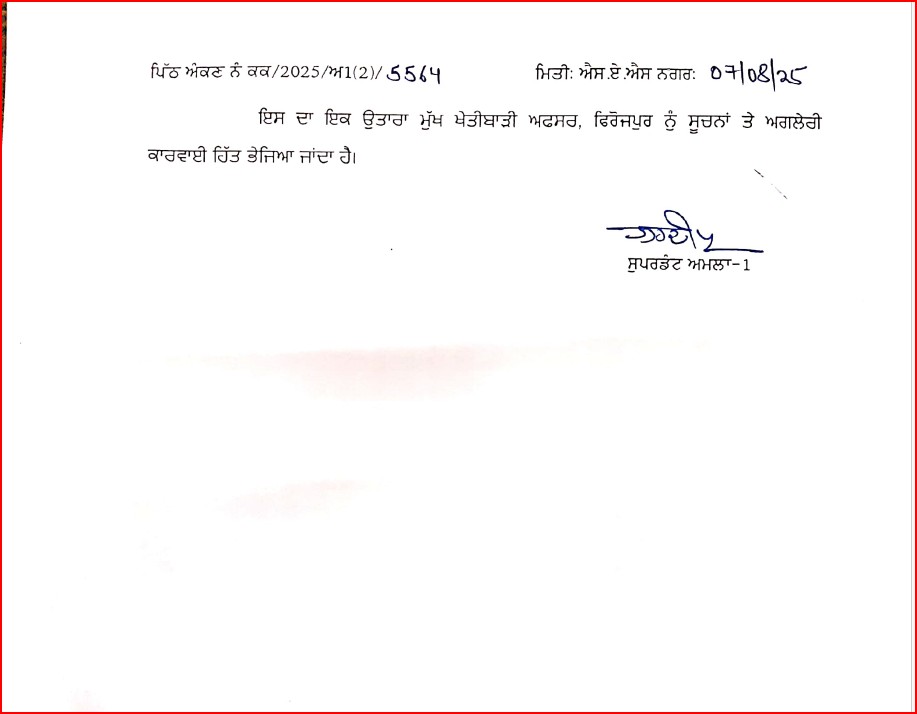 ਪਿੱਠ ਅੰਕਣ ਨੰ ਕਕ/2025/ਅ1(2)/ 5564 ਮਿਤੀ: ਐਸ.ਏ.ਐਸ ਨਗਰ: 07/08/25
ਇਸ ਦਾ ਇਕ ਉਤਾਰਾ ਮੁੱਖ ਖੇਤੀਬਾੜੀ ਅਫਸਰ, ਫਿਰੋਜਪੁਰ ਨੂੰ ਸੂਚਨਾਂ ਤੇ ਅਗਲੇਰੀ
ਕਾਰਵਾਈ ਹਿੱਤ ਭੇਜਿਆ ਜਾਂਦਾ ਹੈ।
ਸੁਪਰਡੰਟ ਅਮਲਾ-1